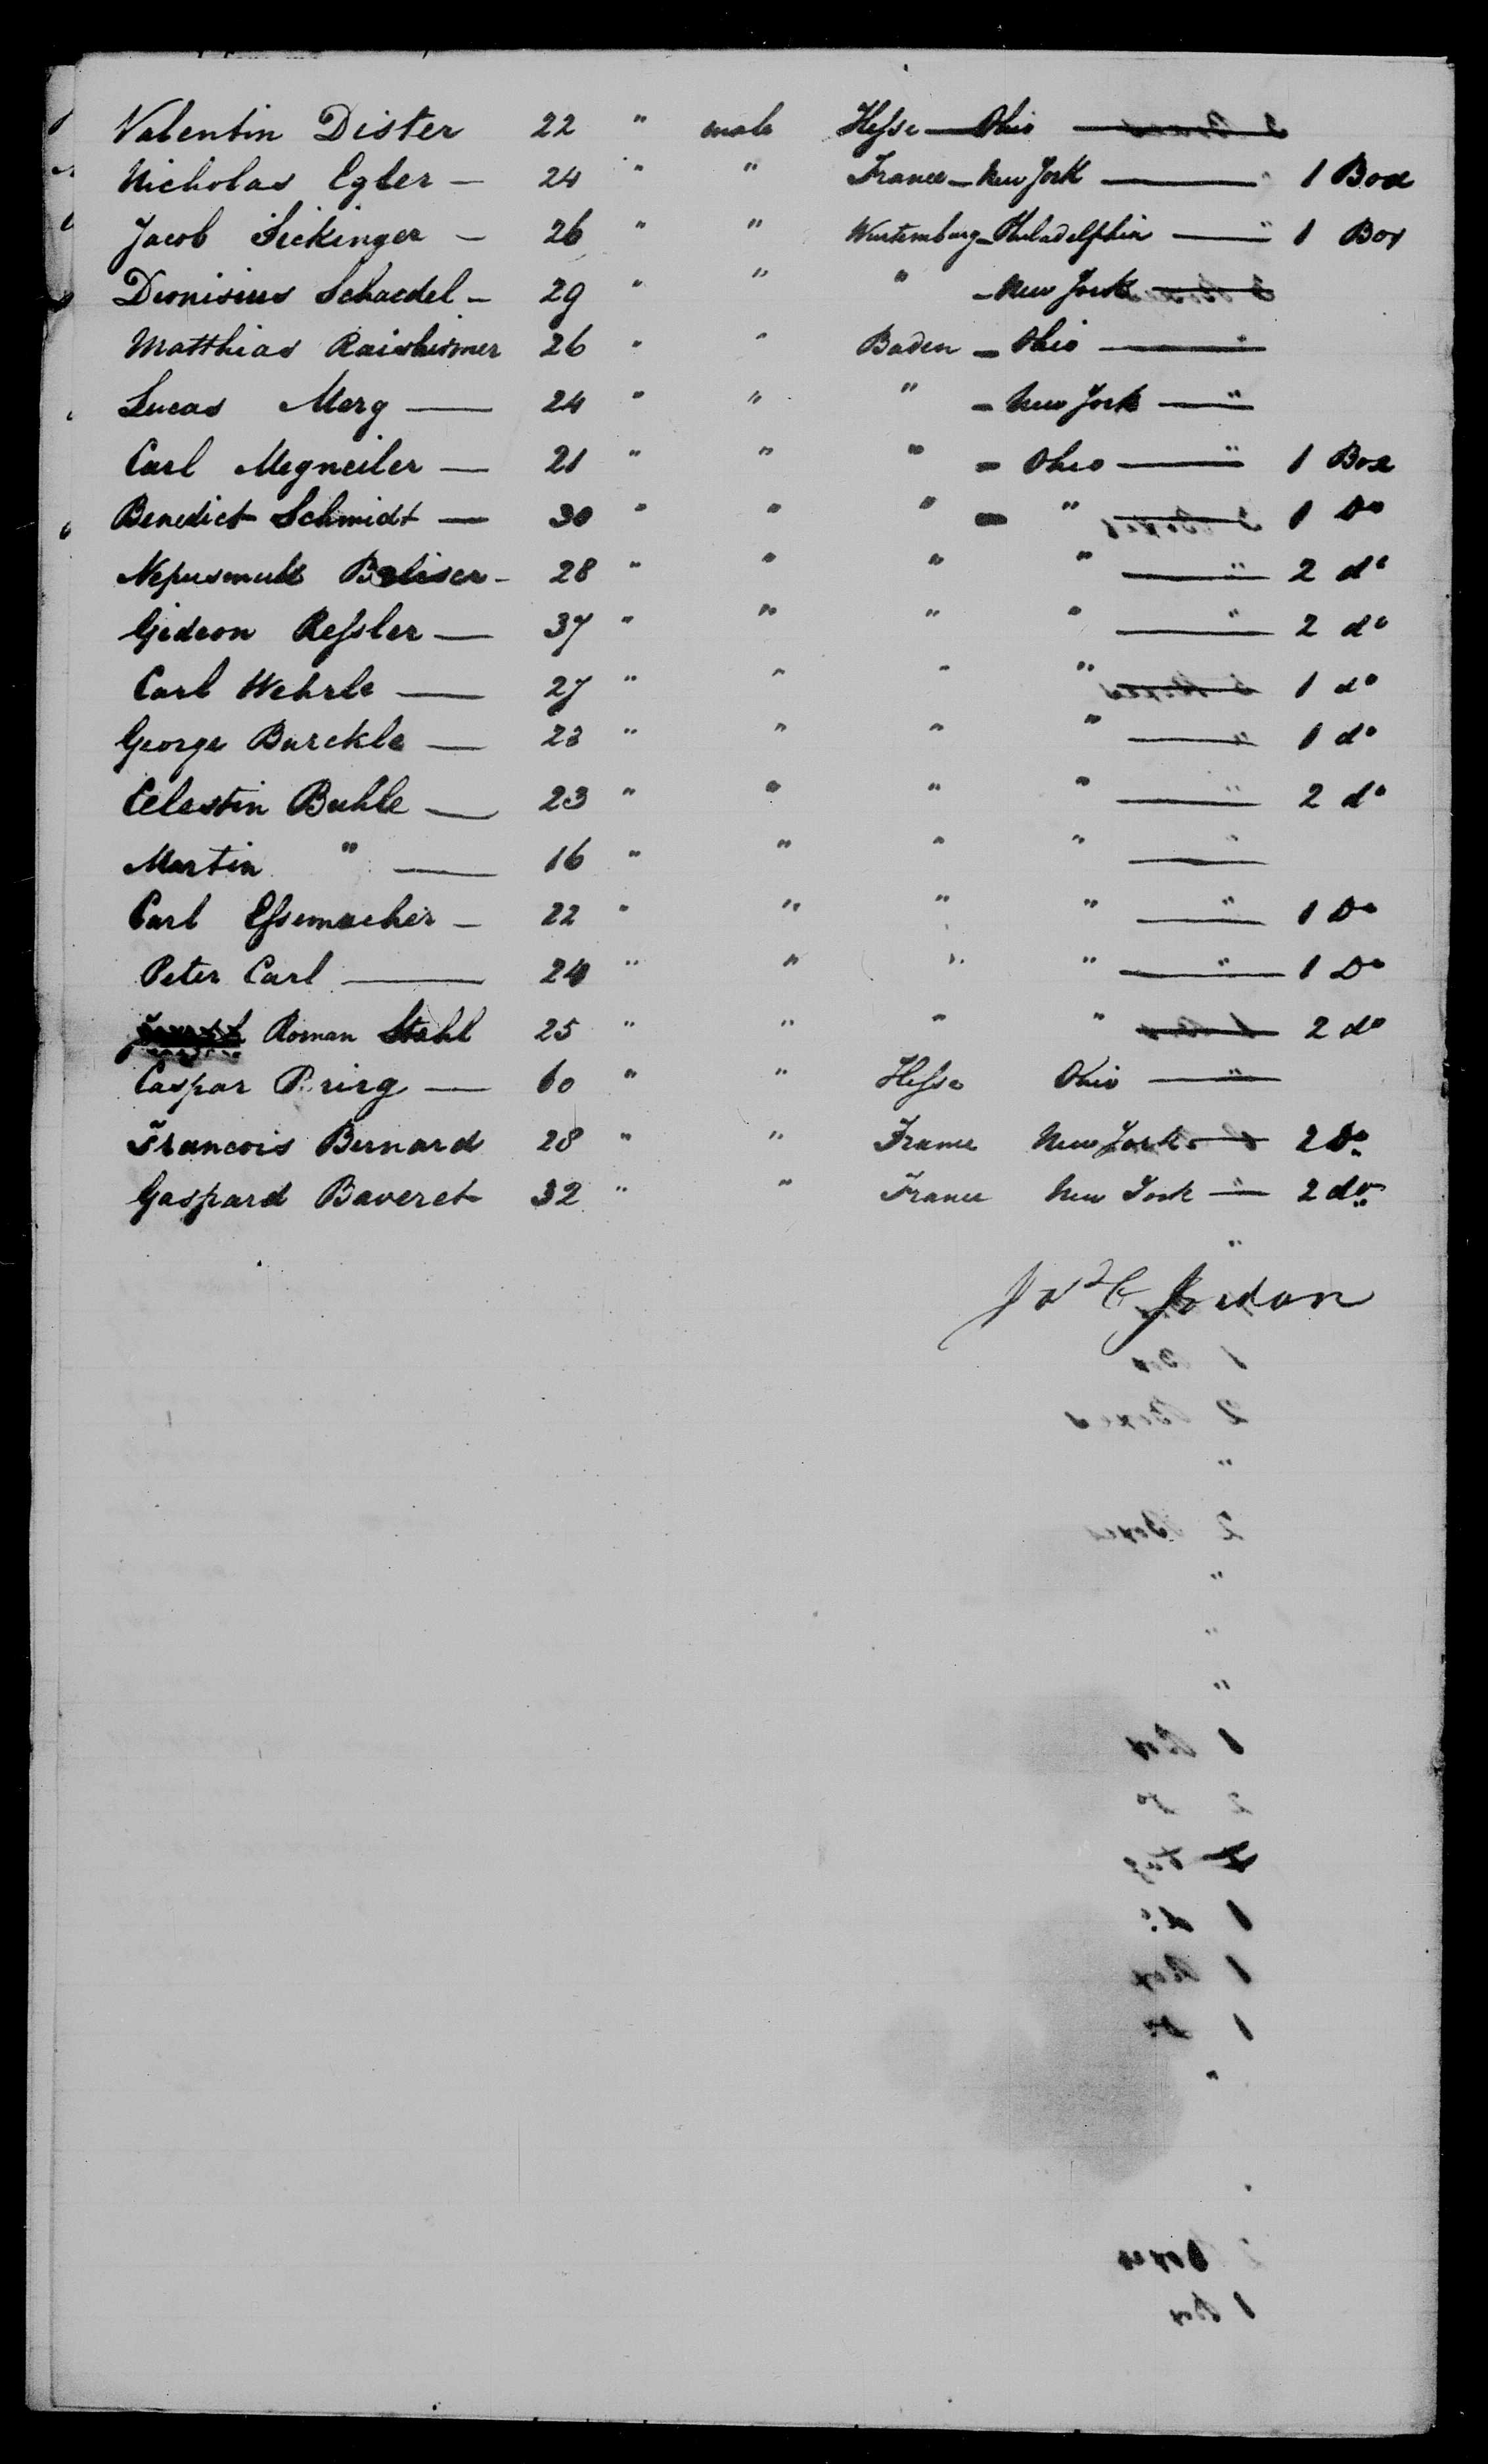 Valentin Dister 22 " male Hesse — Ohio —
Nicholas Egler — 24 " " France — New York — " 1 Box
Jacob Sickinger — 26 " " Wurtemburg — Philadelphia — " 1 Box
Dionisius Schaedel — 29 " " " — New York —
Matthias 26 " " Baden — Ohio — "
Lucas Merg — 24 " " " — New York — "
Carl Megneiler — 21 " " " — Ohio — " 1 Box
Benedict Schmidt — 30 " " " — " — 1 Do
28 " " " " — " 2 do
Gideon Ressler — 37 " " " " — " 2 do
Carl Wehrle — 27 " " " " — 1 do
George Burckle — 23 " " " " — " 1 do
Celestin Buhle — 23 " " " " — " 2 do
Martin " — 16 " " " " — "
Carl Essemacher — 22 " " " " — " 1 Do
Peter Carl — 24 " " " " — " 1 Do
Roman Stahl 25 " " " " — 2 do
Caspar — 60 " " Hesse Ohio — "
Francois Bernard 28 " " France New York — 2 Do
Gaspard Baveret 32 " " France New York — " 2 do
"
Jordan